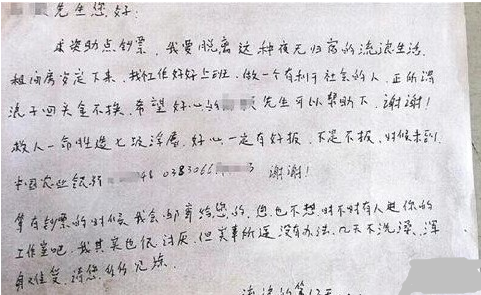 先生您好:
求资助点钞票,我要脱离这种夜无归宿的流浪生活.
租间房安定下来.找工作好好上班.做一个有利于社会的人,正所谓
浪子回头金不换,希望好心的 先生可以帮助下,谢谢!
救人一命胜造七级浮屠.好心一定有好报,不是不报,时候未到.
中国农业银行 48 0383066 谢谢!
等有钞票的时候我会邮寄给您的,您也不想时不时有人进你的
工作室吧,我其实也很讨厌,但实事所逼没有办法,几天不洗澡,浑
身难受,请您
流浪的第